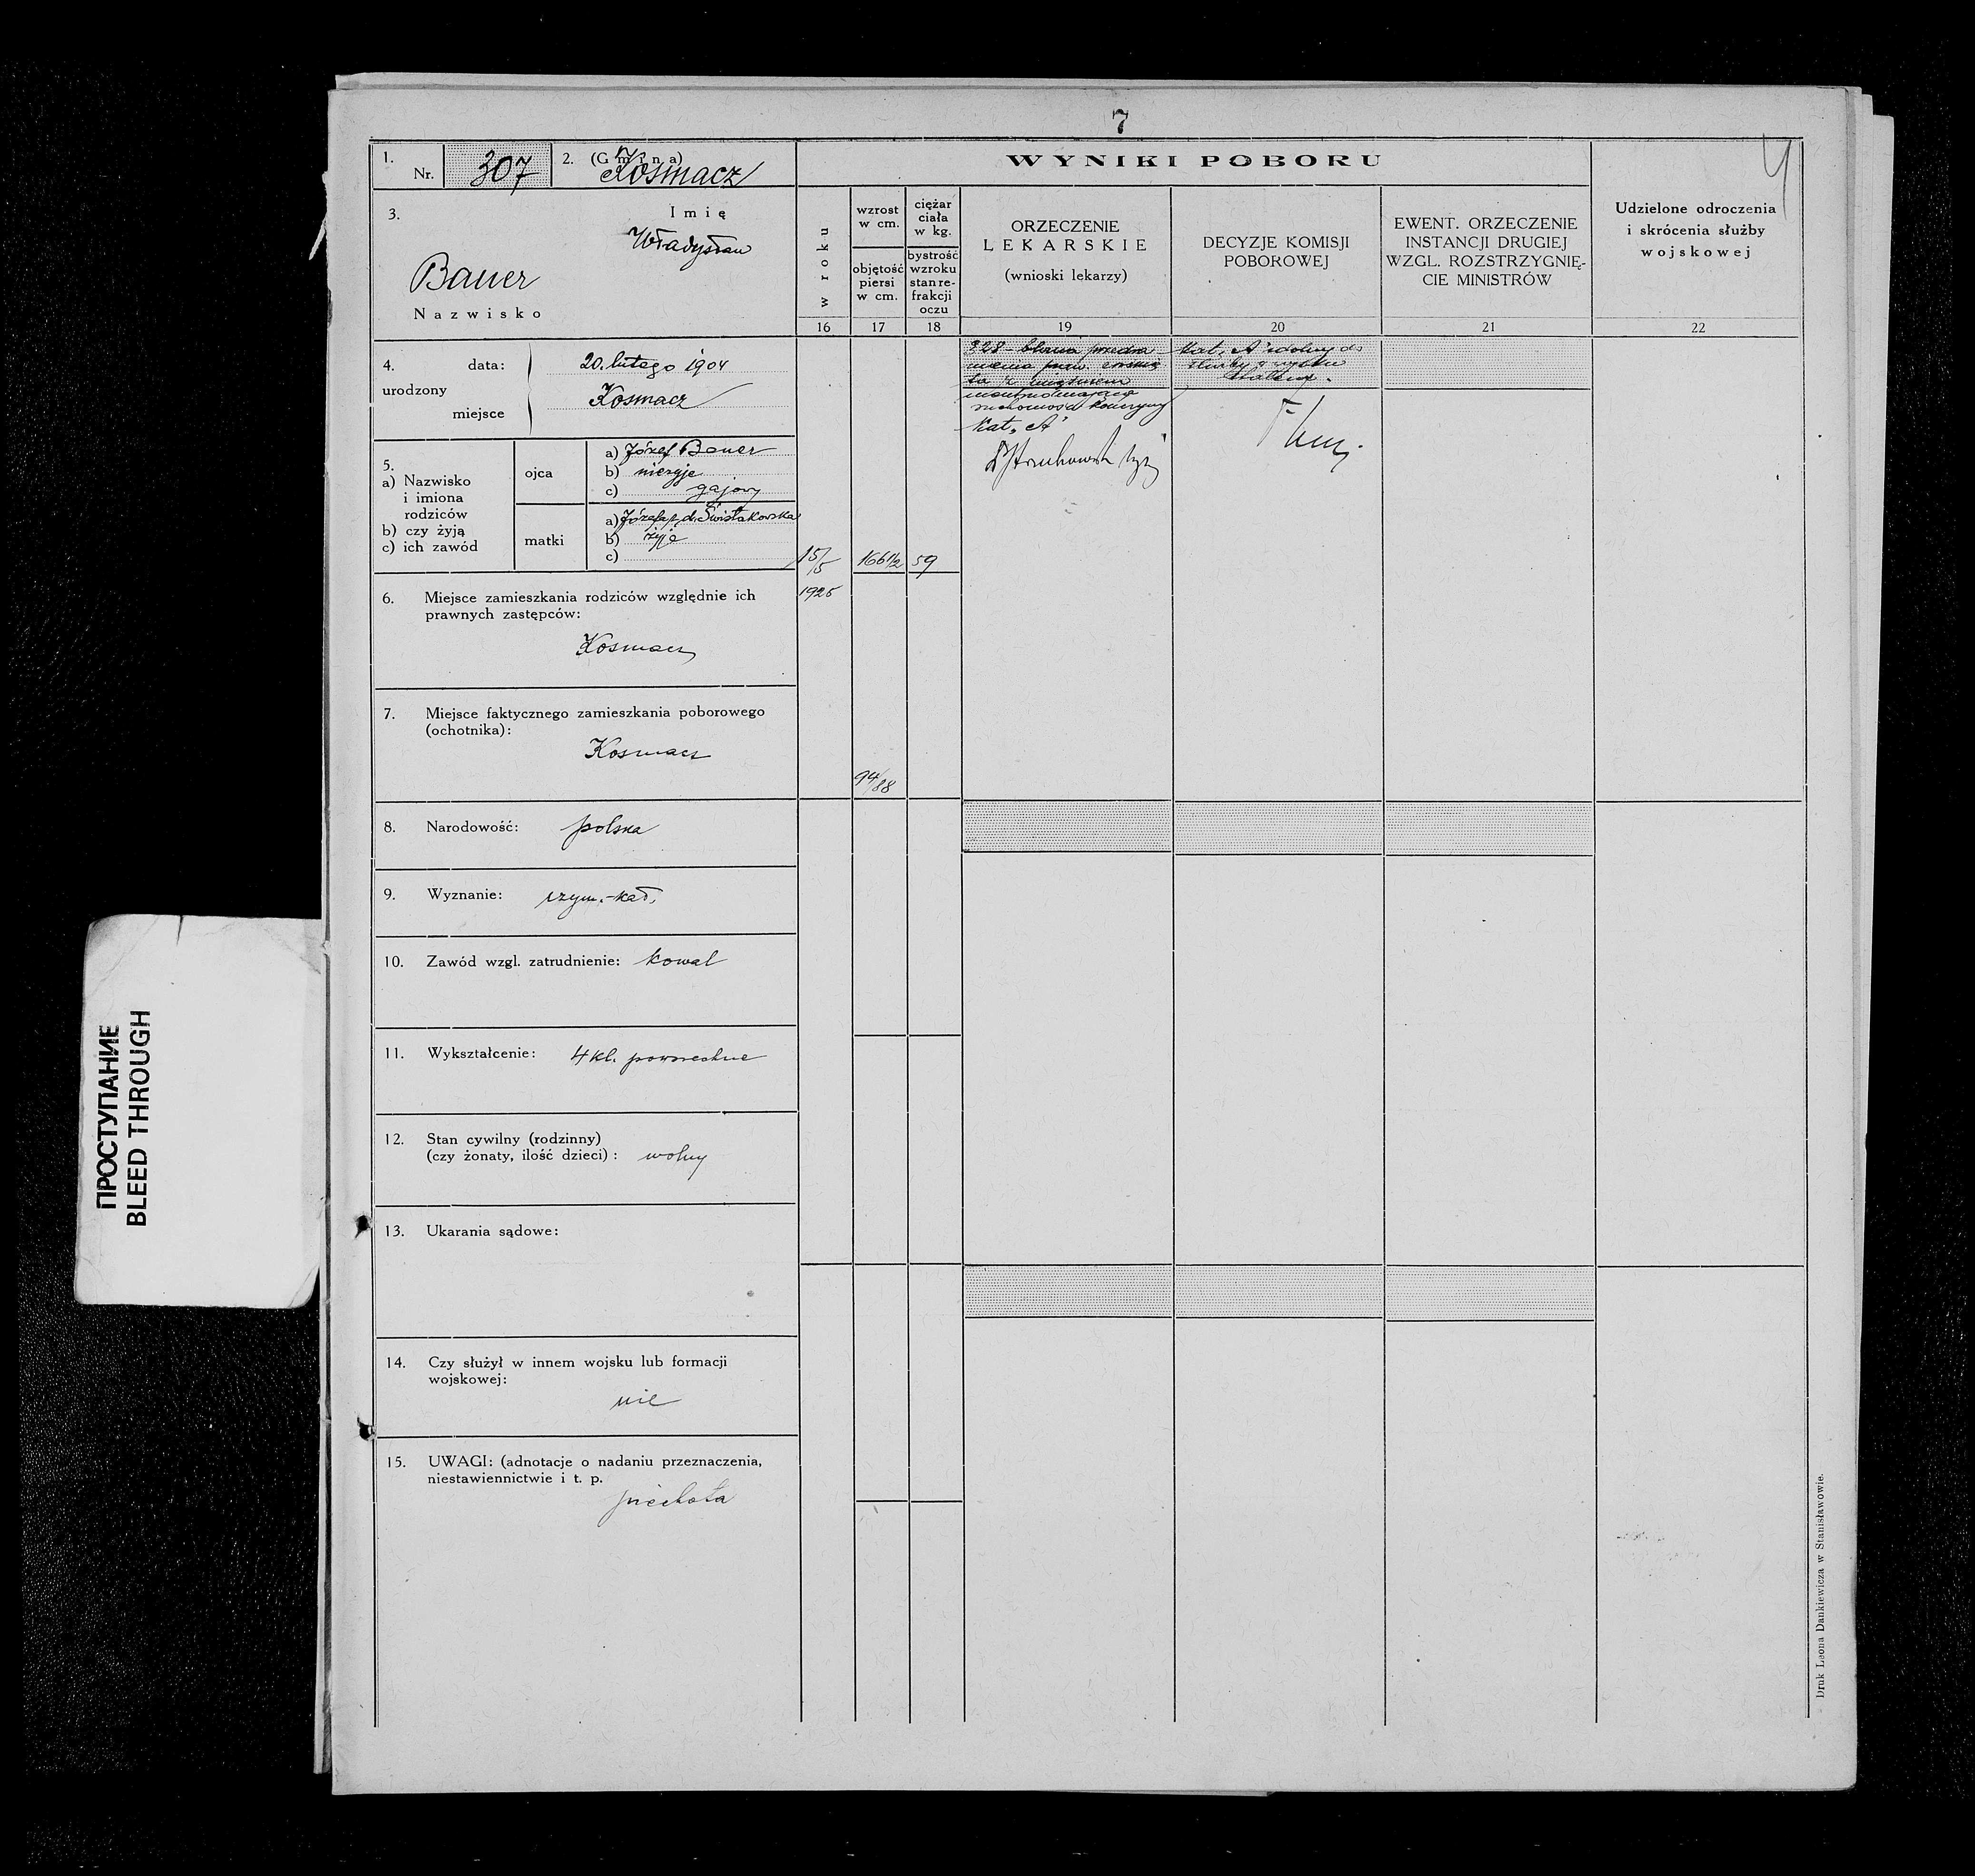 7
1.
Nr. 307
2. (Gmina)
Kosmacz
WYNIKI POBORU
4
3.
Imię
Władysław
Bauer
Nazwisko
w roku
wzrost
w cm.
objętość
piersi
w cm.
ciężar
ciała
w kg.
bystrość
wzroku
stan re-
frakcji
oczu
ORZECZENIE
LEKARSKIE
(wnioski lekarzy)
DECYZJE KOMISJI
POBOROWEJ
EWENT. ORZECZENIE
INSTANCJI DRUGIEJ
WZGL. ROZSTRZYGNIĘ-
CIE MINISTRÓW
Udzielone odroczenia
i skrócenia służby
wojskowej
16 17 18 19 20 21 22
4. data: 20. lutego 1904
urodzony
miejsce Kosmacz
328 – blizna
kat. „A" zdolny do
służby z
ruchomości kończyny
Kat. „A"
5.
a) Nazwisko
i imiona
rodziców
b) czy żyją
c) ich zawód
ojca
a) Józef Bauer
b) nieżyje
c) gajowy
matki
a) Józefa z d. Świstakowska
b) żyje
c)
15/5 166 1/2 59
1925
6. Miejsce zamieszkania rodziców względnie ich
prawnych zastępców:
Kosmacz
7. Miejsce faktycznego zamieszkania poborowego
(ochotnika):
Kosmacz
94/88
8. Narodowość: polska
9. Wyznanie: rzym.-kat.
10. Zawód wzgl. zatrudnienie: kowal
11. Wykształcenie: 4 kl. powszechne
12. Stan cywilny (rodzinny)
(czy żonaty, ilość dzieci): wolny
13. Ukarania sądowe:
14. Czy służył w innem wojsku lub formacji
wojskowej:
nie
15. UWAGI: (adnotacje o nadaniu przeznaczenia,
niestawiennictwie i t. p.
piechota
Druk Leona Dankiewicza w Stanisławowie.
ПРОСТУПАНИЕ
BLEED THROUGH